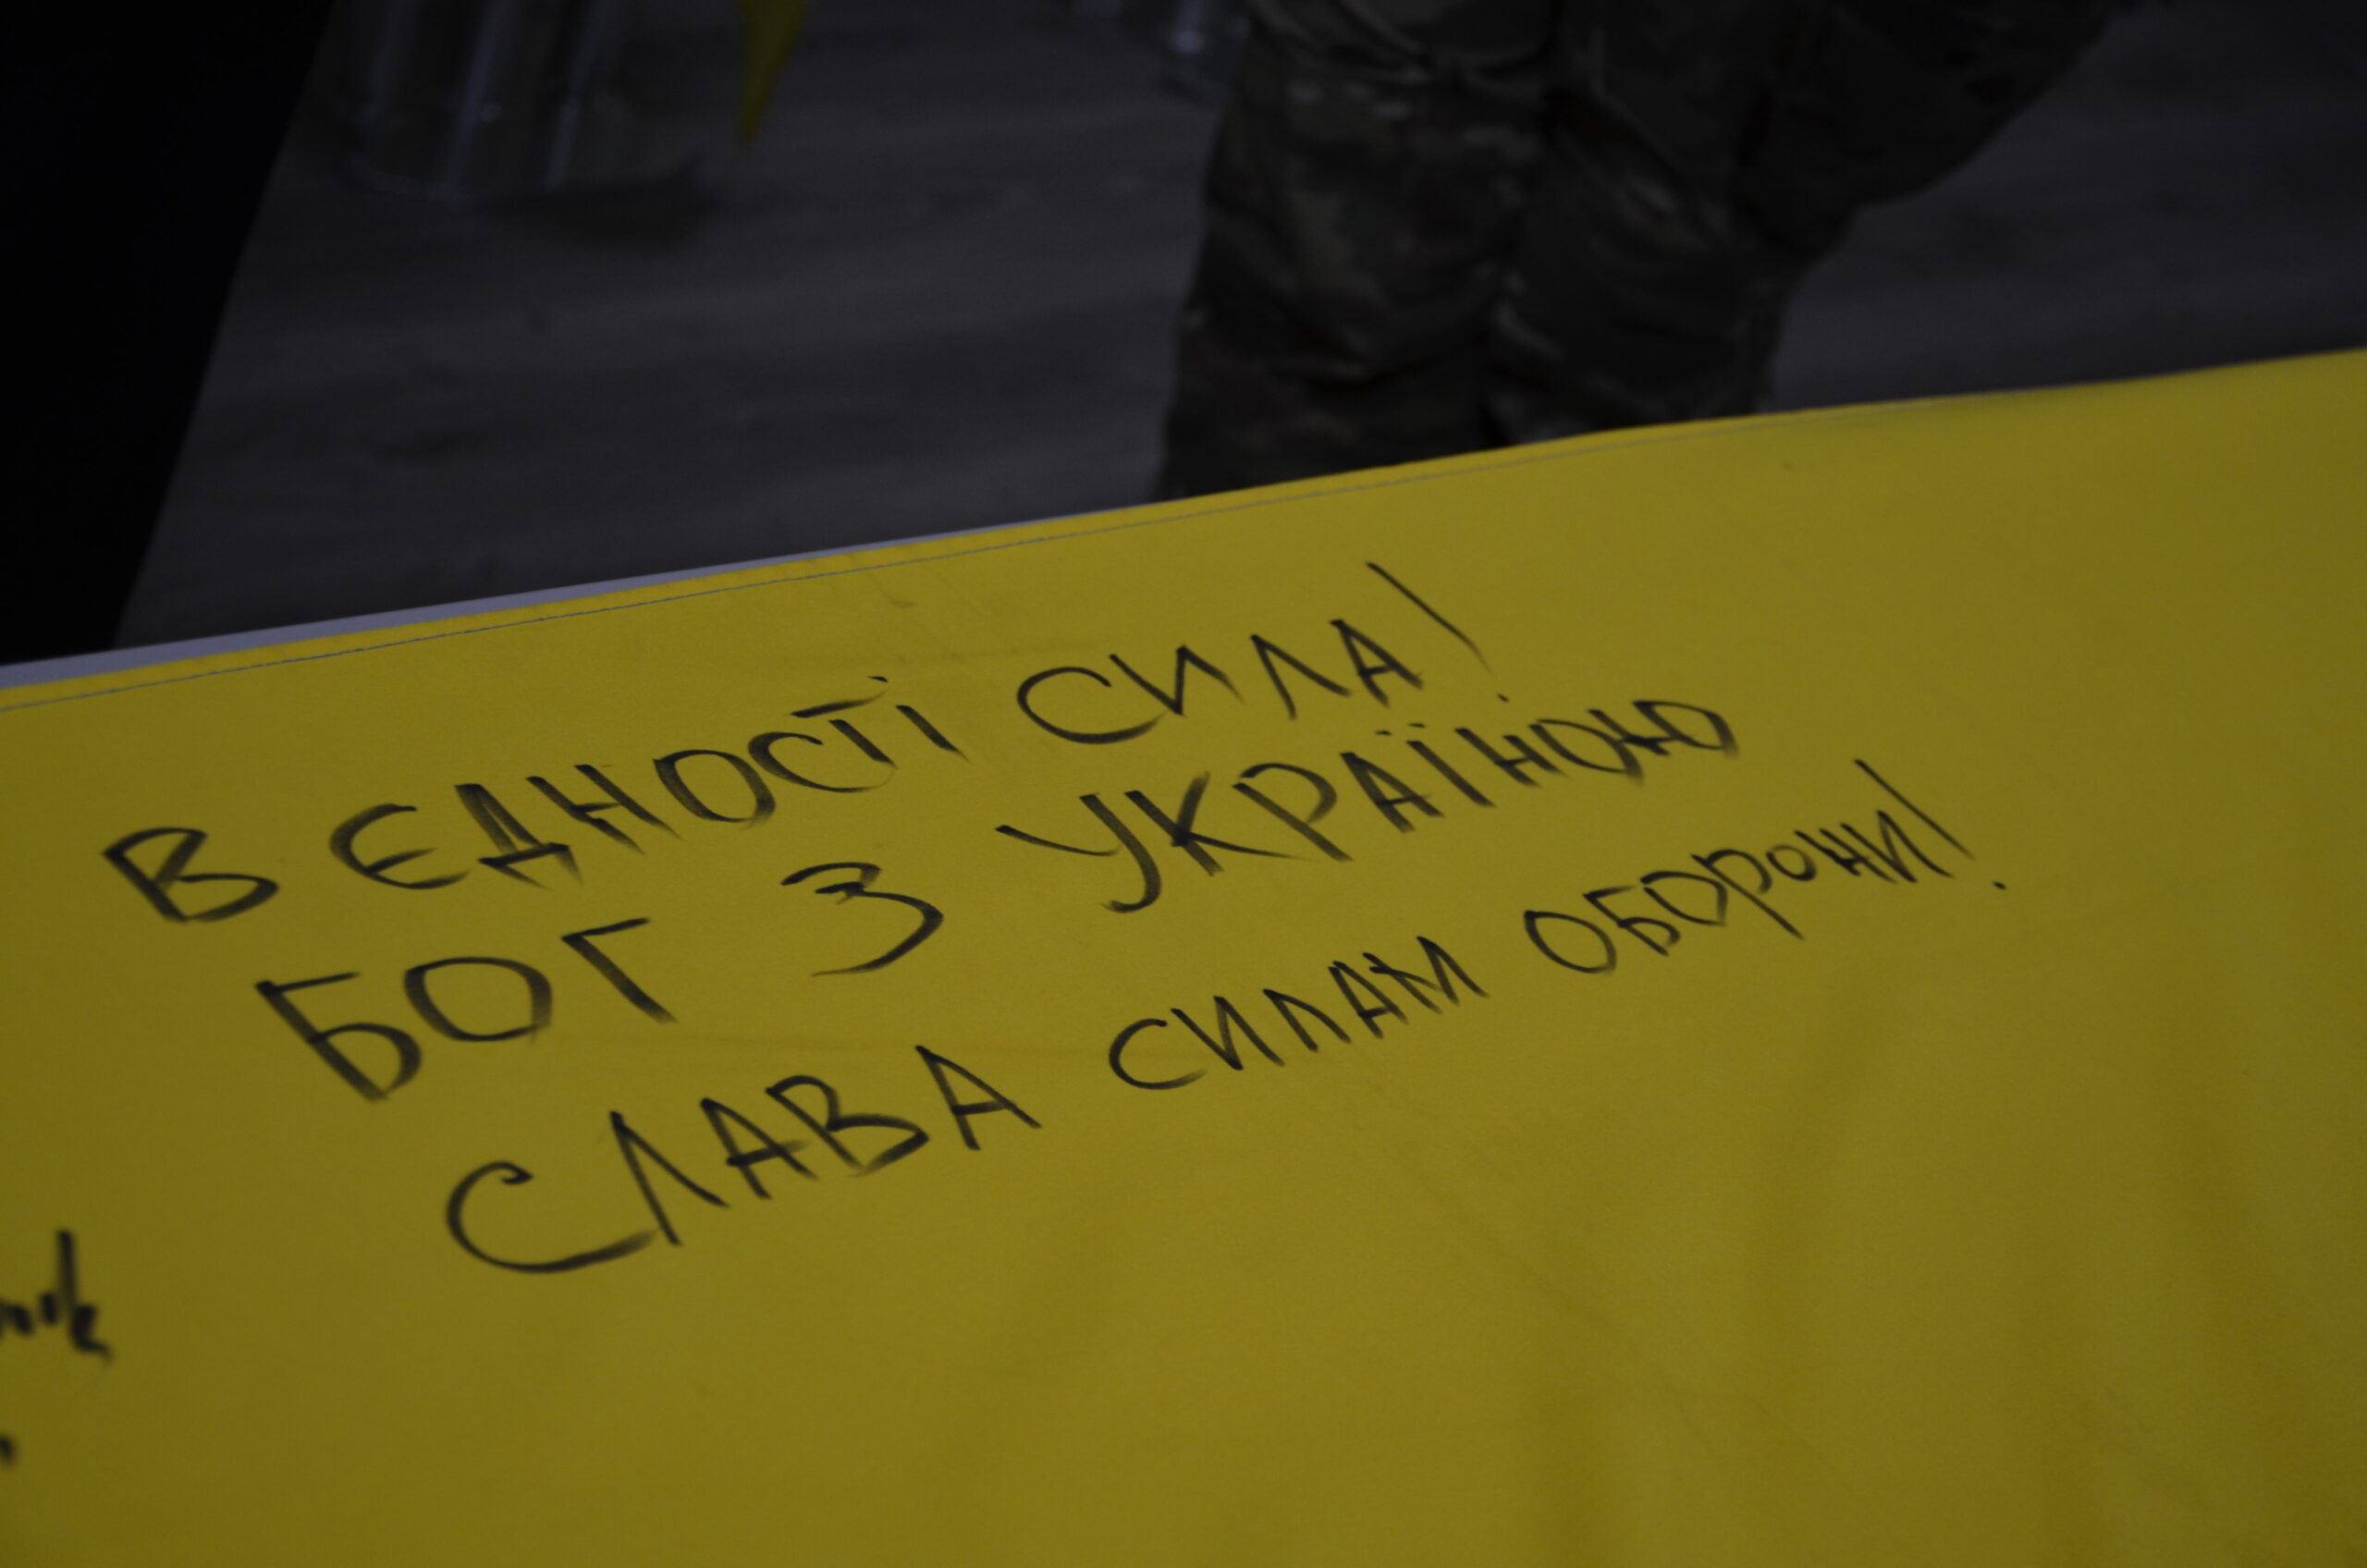 В ЄДНОСТІ СИЛА!
БОГ З УКРАЇНОЮ
СЛАВА СИЛАМ ОБОРОНИ!